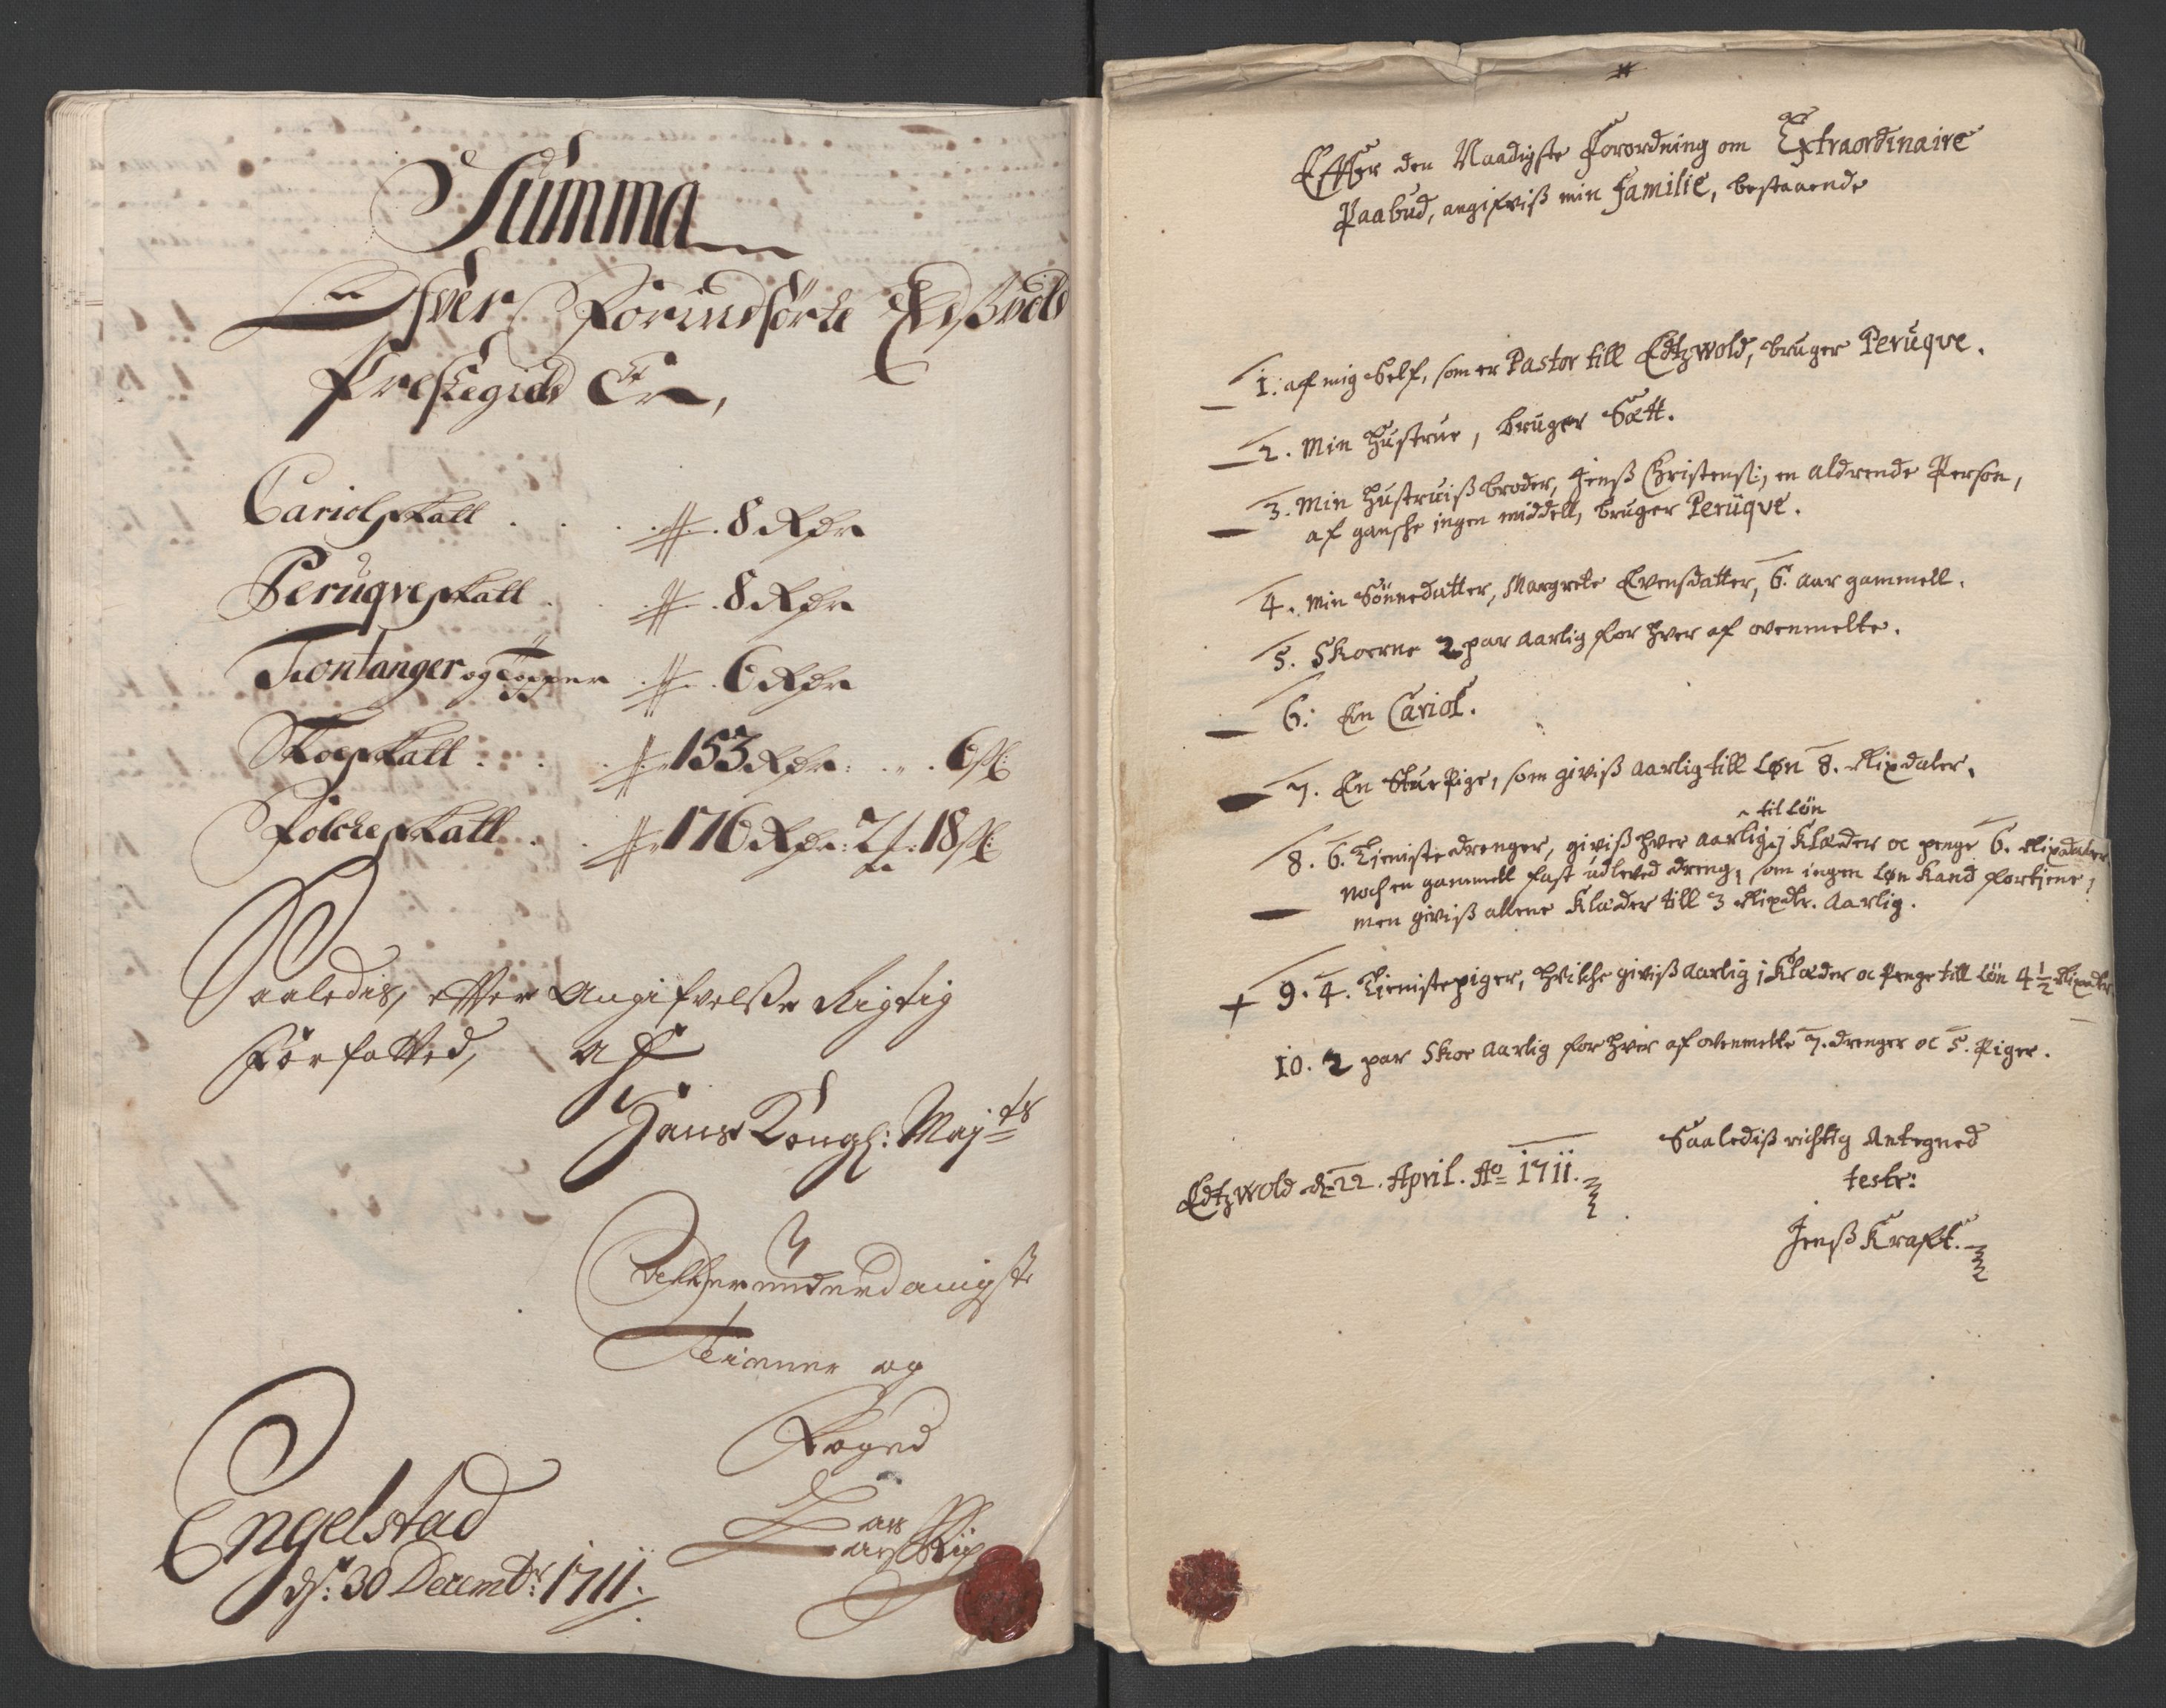 Summa
Ofver Forindførte Edßvold
Prestegield Er,
Cariolskatt . . . 8 Rdr
Peruqveskatt . . 8 Rdr
Fontanger og Topper . 6 Rdr
Skoeskatt . . . 153 Rdr: „ . 6 ſl:
Folckeskatt . . 176 Rdr: 2 ƒ: 18 ſl:
Saaledis, efter Angifvelsse Rigtig
Forfatted, af
Hans Kongl: Maj:ts
Allerunderdanigste
Tienner og
Foged
Engelstad
ds: 30 Decembr: 1711.
Effter den Naadigste Forordning om Extraordinaire
Paabud, angifviß min Familie, bestaaende
1. af mig Self, som er Pastor till Edtzwold, bruger Peruqve.
2. Min Hustrue, bruger Sætt.
3. Min Hustruiß broder, Jenß Christenß:, en aldrende Person,
af gansche ingen middell, bruger Perüqve.
4. Min Sönnedatter, Margrete Evensdatter, 6. aar gammell.
5. Skoerne 2 par aarlig for hver af ovenmelte.
6. En Cariol.
7. En StuePige, som giviß aarlig till Løn 8. Rixdaler.
^ til Løn
8. 6. Tieniste drenger, giviß hver aarlig j Klæder oc penge 6. Rixdaler
noch en gammell fast udleved dreng, som ingen Løn kand fortjene,
men giviß allene Klæder till 3 Rixdlr. aarlig.
+ 9. 4. Tienistepiger, hvilche giviß aarlig j Klæder oc Penge till Løn 4 1/2 Rixdlr
10. 2 par Skoe aarlig for hver af ovenmelte 7. drenger oc 5. Piger.
Saalediß richtig Antegned
Edtzwold d. 22. April. Ao 1711.
teste:
Jenß Kraft.